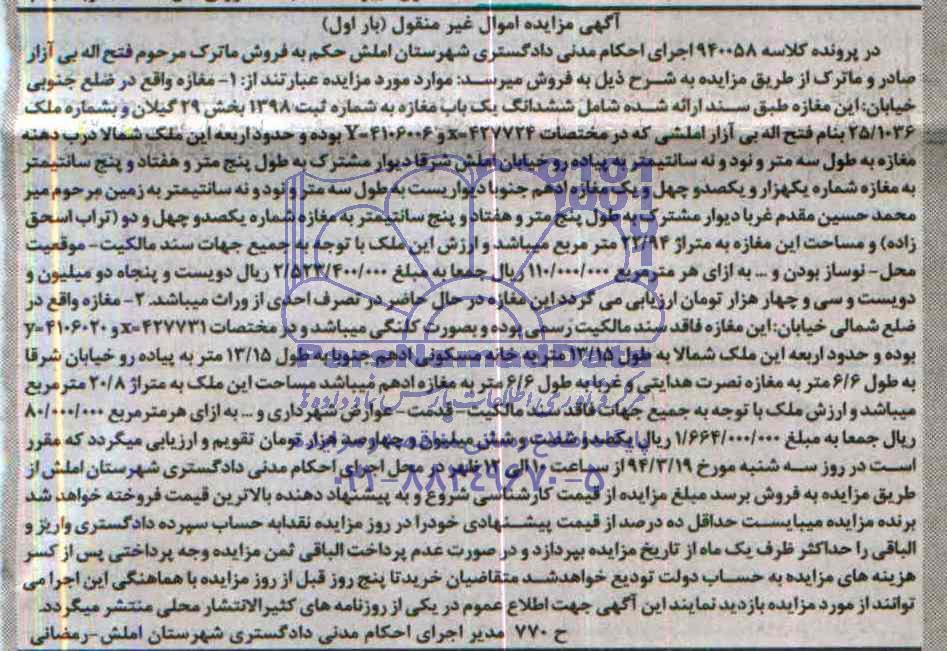 آگهی مزایده اموال غیر منقول (بار اول)
در پرونده کلاسه ۹۴۰۰۵۸ اجرای احکام مدنی دادگستری شهرستان املش حکم به فروش ماترک مرحوم فتح اله بی آزار
صادر و ماترک از طریق مزایده به شرح ذیل به فروش میرسد: موارد مورد مزایده عبارتند از: ۱- مغازه واقع در ضلع جنوبی
خیابان: این مغازه طبق سند ارائه شده شامل ششدانگ یک باب مغازه به شماره ثبت ۱۳۹۸ بخش ۲۹ گیلان و بشماره ملک
۲۵/۱۰۳۶ بنام فتح اله بی آزار املشی که در مختصات x=۴۲۷۷۲۴ و Y=۴۱۰۶۰۰۶ بوده و حدود اربعه این ملک شمالا درب دهنه
مغازه به طول سه متر و نود و نه سانتیمتر به پیاده رو خیابان املش شرقا دیوار مشترک به طول پنج متر و هفتاد و پنج سانتیمتر
به مغازه شماره یکهزار و یکصدو چهل و یک مغازه ادهم جنوبا دیواریست به طول سه متر و نود و نه سانتیمتر به زمین مرحوم میر
محمد حسین مقدم غربا دیوار مشترک به طول پنج متر و هفتاد و پنج سانتیمتر به مغازه شماره یکصدو چهل و دو (تراب اسحق
زاده) و مساحت این مغازه به متراژ ۲۲/۹۴ متر مربع میباشد و ارزش این ملک با توجه به جمیع جهات سند مالکیت- موقعیت
محل- نوساز بودن و ... به ازای هر متر مربع ۱۱۰/۰۰۰/۰۰۰ ریال جمعا به مبلغ ۲/۵۲۳/۴۰۰/۰۰۰ ریال دویست و پنجاه دو میلیون و
دویست و سی و چهار هزار تومان ارزیابی می گردد این مغازه در حال حاضر در تصرف احدی از وراث میباشد. ۲- مغازه واقع در
ضلع شمالی خیابان: این مغازه فاقد سند مالکیت رسمی بوده و بصورت کلنگی میباشد و در مختصات x=۴۲۷۷۳۱ و y=۴۱۰۶۰۲۰
بوده و حدود اربعه این ملک شمالا به طول ۱۳/۱۵ متر به خانه مسکونی ادهم جنوبا به طول ۱۳/۱۵ متر به پیاده رو خیابان شرقا
به طول ۶/۶ متر به مغازه نصرت هدایتی و غربا به طول ۶/۶ متر به مغازه ادهم میباشد مساحت این ملک به متراژ ۲۰/۸ متر مربع
میباشد و ارزش ملک با توجه به جمیع جهات فاقد سند مالکیت- قدمت- عوارض شهرداری و ... به ازای هر متر مربع ۸۰/۰۰۰/۰۰۰
ریال جمعا به مبلغ ۱/۶۶۴/۰۰۰/۰۰۰ ریال یکصد و شصت و شش میلیون و چهارصد هزار تومان تقویم و ارزیابی میگردد که مقرر
است در روز سه شنبه مورخ ۹۴/۳/۱۹ از ساعت ۱۰ الی ۱۲ ظهر در محل اجرای احکام مدنی دادگستری شهرستان املش از
طریق مزایده به فروش برسد مبلغ مزایده از قیمت کارشناسی شروع و به پیشنهاد دهنده بالاترین قیمت فروخته خواهد شد
برنده مزایده میبایست حداقل ده درصد از قیمت پیشنهادی خود را در روز مزایده نقدا به حساب سپرده دادگستری واریز و
الباقی را حداکثر ظرف یک ماه از تاریخ مزایده بپردازد و در صورت عدم پرداخت الباقی ثمن مزایده وجه پرداختی پس از کسر
هزینه های مزایده به حساب دولت تودیع خواهد شد متقاضیان خرید تا پنج روز قبل از روز مزایده با هماهنگی این اجرا می
توانند از مورد مزایده بازدید نمایند این آگهی جهت اطلاع عموم در یکی از روزنامه های کثیرالانتشار محلی منتشر میگردد.
ح ۷۷۰ مدیر اجرای احکام مدنی دادگستری شهرستان املش-رمضانی
ParsNamadData
۰۲۱-۸۸۳۴۹۶۷۰-۵